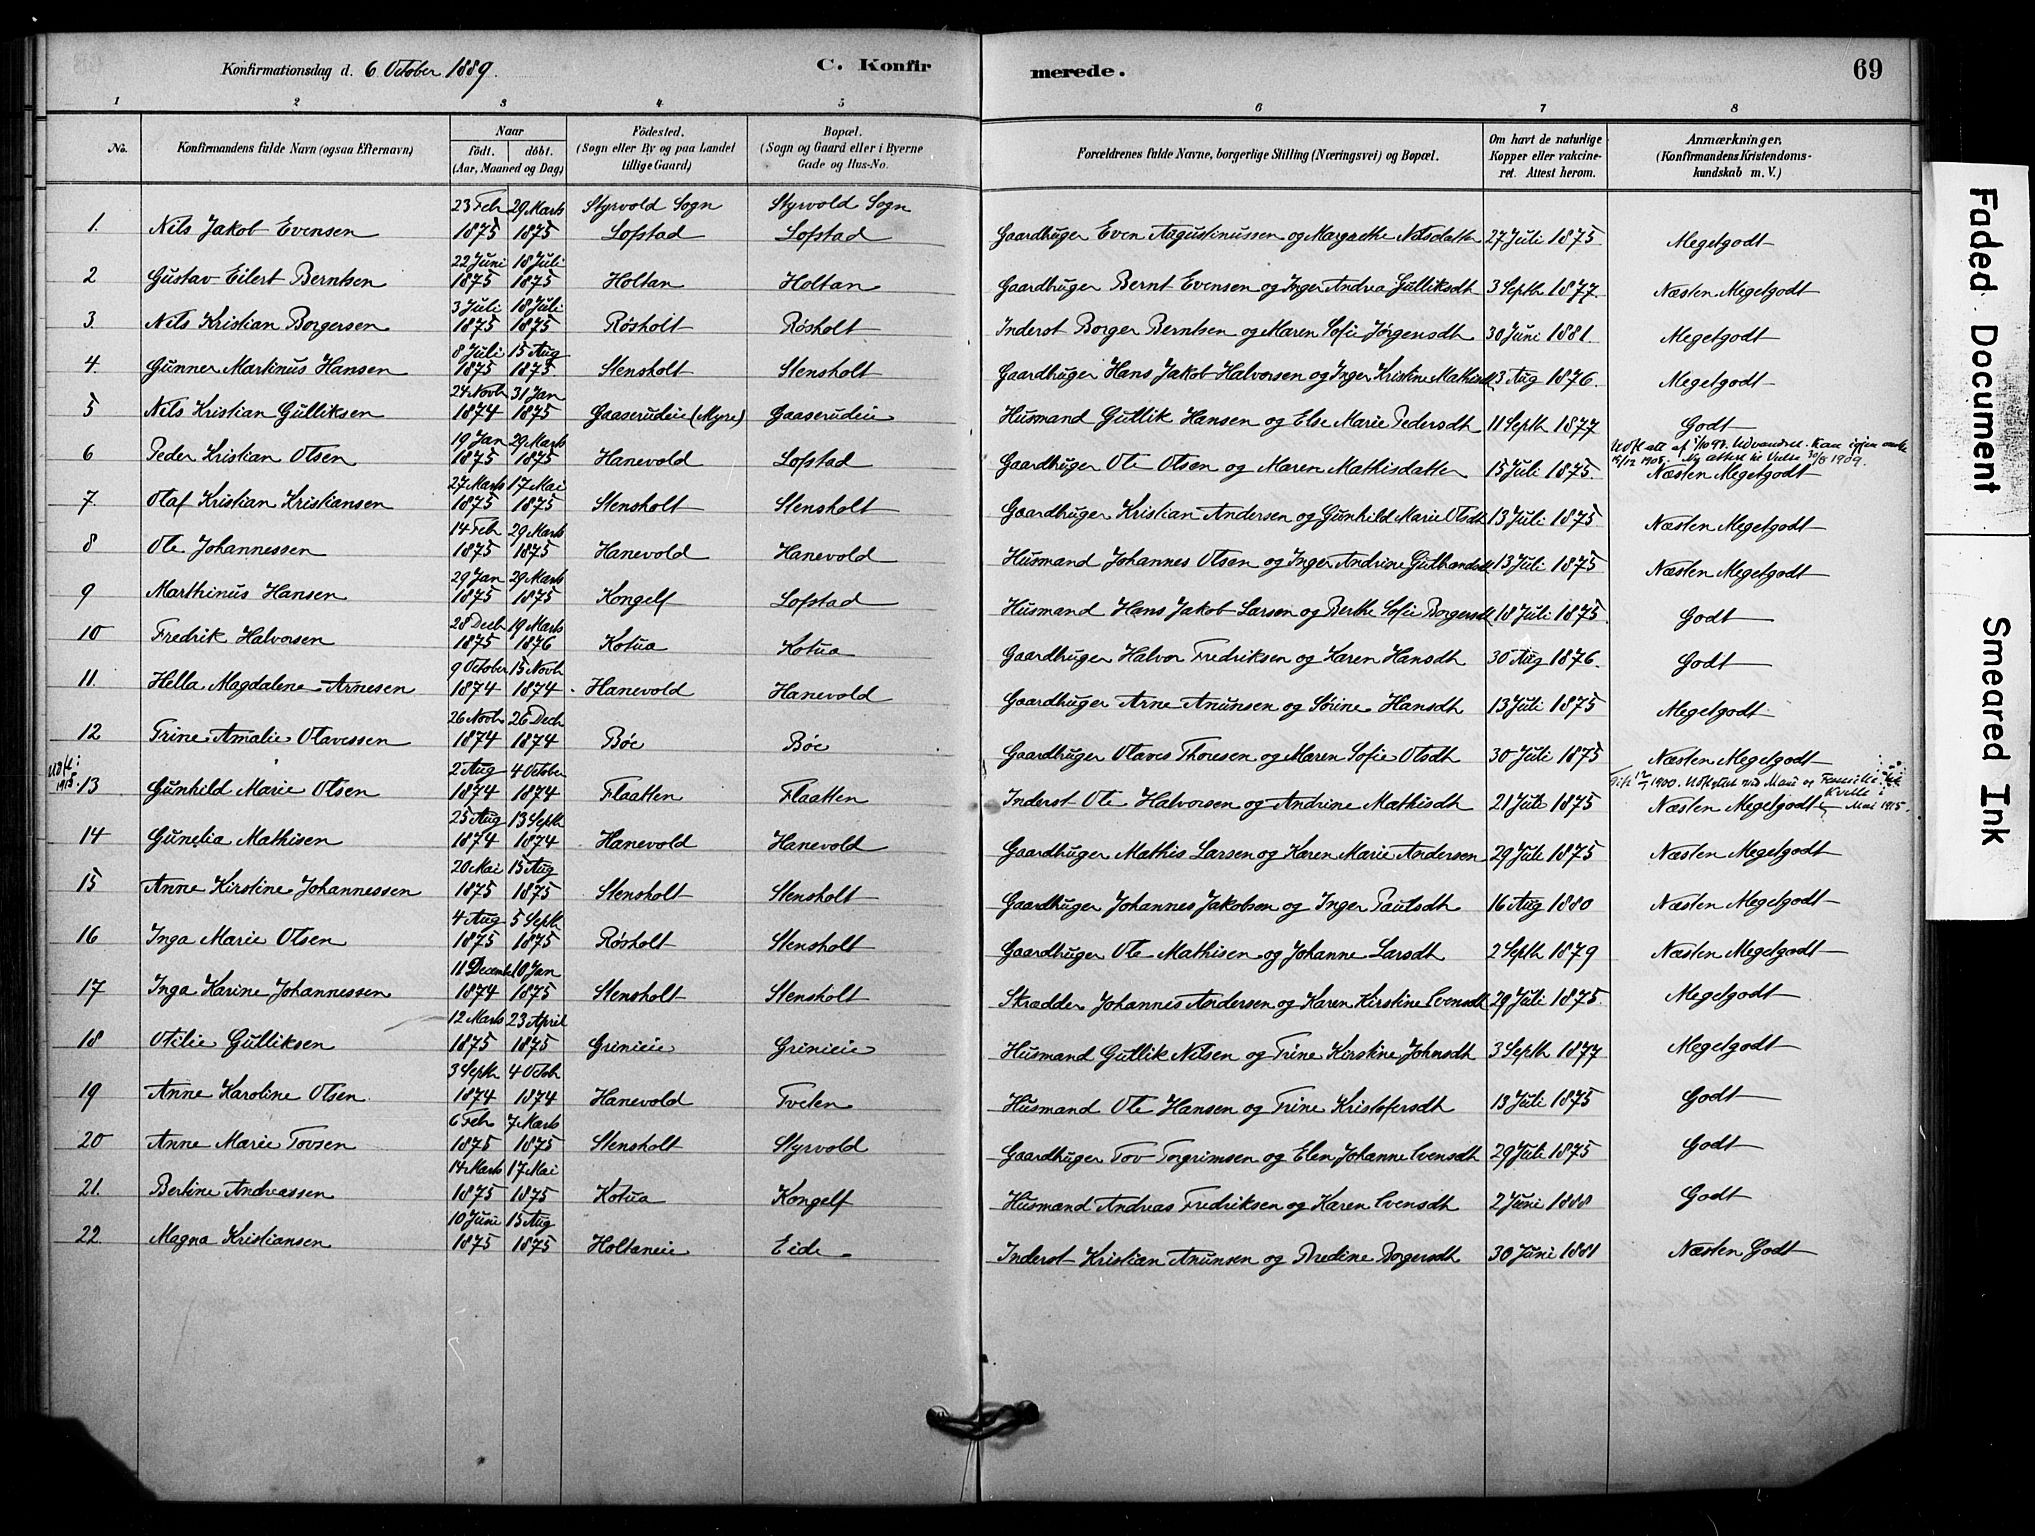 Konfirmationsdag d. 6 October 1889. C. Konfirmerede. 69
1 2 3 4 5 6 7 8
No. Konfirmandens fulde Navn (ogsaa Efternavn) Naar födt. döbt. (Aar, Maaned og Dag) Födested. (Sogn eller By og paa Landet tillige Gaard) Bopæl. (Sogn og Gaard eller i Byerne Gade og Hus-No. Forældrenes fulde Navne, borgerlige Stilling (Næringsvei) og Bopæl. Om havt de naturlige Kopper eller vakcineret. Attest herom. Anmærkninger, (Konfirmandens Kristendomskundskab m. V.)
23 Feb 29 Marts Styrvold Sogn Styrvold Sogn
1. Nils Jakob Evensen 1875 1875 Lofstad Lofstad Gaardbruger Even Augustinussen og Margrethe Nilsdatter 27 Juli 1875 Megetgodt
22 Juni 18 Juli
2 Gustav Eilert Berntsen 1875 1875 Holtan Holtan Gaardbruger Bernt Evensen og Inger Andrea Gulliksdt 3 Septb 1877 Næsten Megetgodt
3 Juli 18 Juli
3. Nils Kristian Borgersen 1875 1875 Røsholt Røsholt Inderst Borger Berntsen og Maren Sofie Jørgensdt 30 Juni 1881. Megetgodt
8 Juli 15 Aug
4. Gunner Martinus Hansen 1875 1875 Stensholt Stensholt Gaardbruger Hans Jakob Halvorsen og Inger Kristine Mathisdt 3 Aug 1876. Megetgodt
24 Novb 31 Jan
5 Nils Kristian Gulliksen 1874 1875 Gaaserudeie (Myre) Gaaserudeie Husmand Gullik Hansen og Else Marie Pedersdt 11 Septb 1877 Godt
19 Jan 29 Marts Udvandret. 1909.
6 Peder Kristian Olsen 1875 1875 Hanevold Lofstad Gaardbruger Ole Olsen og Maren Mathisdatter 15 Juli 1875. Næsten Megetgodt
27 Marts 17 Mai
7. Olaf Kristian Kristiansen 1875 1875 Stensholt Stensholt Gaardbruger Kristian Andersen og Gunhild Marie Olsdt 13 Juli 1875 Næsten Megetgodt
14 Feb 29 Marts
8 Ole Johannessen 1875 1875 Hanevold Hanevold Husmand Johannes Olsen og Inger Andrine Gulbrandsdt 13 Juli 1875 Næsten Megetgodt
29 Jan 29 Marts
9 Marthinus Hansen 1875 1875 Kongelf Lofstad Husmand Hans Jakob Larsen og Berthe Sofie Borgersdt 18 Juli 1875. Godt
28 Decb 19 Marts
10 Fredrik Halvorsen 1875 1876 Kotua Kotua Gaardbruger Halvor Fredriksen og Karen Hansdt 30 Aug 1876. Godt
9 October 15 Novb
11. Hella Magdalene Arnesen 1874 1874 Hanevold Hanevold Gaardbruger Arne Anunsen og Sørine Hansdt 13 Juli 1875 Megetgodt
26 Novb 26 Decb
12 Trine Amalie Olavessen 1874 1874 Bøe Bøe Gaardbruger Olaves Thoresen og Maren Sofie Olsdt 30 Juli 1875 Næsten Megetgodt
Udfl: 1915. 2 Aug 4 October 1900. Mai 1915.
13 Gunhild Marie Olsen 1874 1874 Flaatten Flaatten Inderst Ole Halvorsen og Andrine Mathisdt 21 Juli 1875 Næsten Megetgodt
25 Aug 13 Septb
14 Gunelia Mathisen 1874 1874 Hanevold Hanevold Gaardbruger Mathis Larsen og Karen Marie Andersen 29 Juli 1875 Næsten Megetgodt
20 Mai 15 Aug
15 Anne Kirstine Johannessen 1875 1875 Stensholt Stensholt Gaardbruger Johannes Jakobsen og Inger Paulsdt 16 Aug 1880 Næsten Megetgodt
4 Aug 5 Septb
16 Inga Marie Olsen 1875 1875 Røsholt Stensholt Gaardbruger Ole Mathisen og Johanne Larsdt 2 Septb 1879 Næsten Megetgodt
11 December 10 Jan
17 Inga Karine Johannessen 1874 1875 Stensholt Stensholt Skrædder Johannes Andersen og Karen Kirstine Evensdt 29 Juli 1875. Megetgodt
12 Marts 23 April
18 Otilie Gulliksen 1875 1875 Grinieie Grinieie Husmand Gullik Nilsen og Trine Kirstine Johnsdt 3 Septb 1877 Megetgodt
3 Septb 4 Octob
19 Anne Karoline Olsen 1874 1874 Hanevold Tveten Husmand Ole Hansen og Trine Kristofersdt 13 Juli 1875 Godt
6 Feb 7 Marts
20 Anne Marie Tovsen 1875 1875 Stensholt Styrvold Gaardbruger Tov Torgrimsen og Elen Johanne Evensdt 29 Juli 1875 Godt
14 Marts 17 Mai
21. Bertine Andreassen 1875 1875 Kotua Kongelf Husmand Andreas Fredriksen og Karen Evensdt 2 Juni 1888 Godt
10 Juni 15 Aug
22. Magna Kristiansen 1875 1875 Holtaneie Eide Inderst Kristian Anunsen og Bredine Borgersdt 30 Juni 1881 Næsten Godt
Faded Document
Smeared Ink